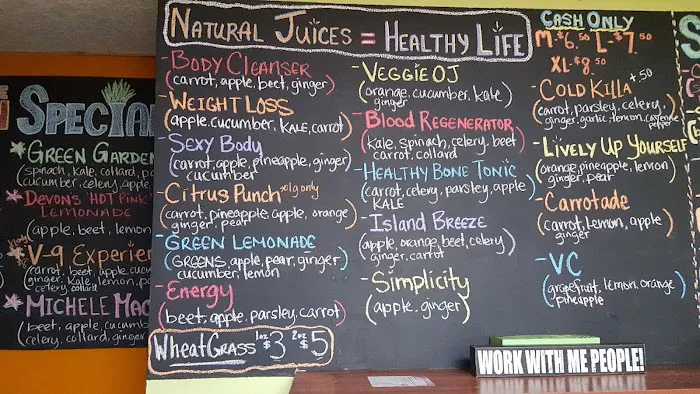 Special
- Green Garden
spinach, kale, collard,
cucumber, celery,
Devon's "Hot Pink"
Lemonade
(apple, beet, lemon
V-9 Experien
carrot, beet, apple,
ginger, kale, lemon,
celery, collard
Michele Mac
(beet, apple,
celery, collard, ginger
Natural Juices = Healthy Life
- Body Cleanser
(carrot, apple, beet, ginger)
- Weight Loss
(apple, cucumber, kale, carrot)
- Sexy Body
(carrot, apple, pineapple, ginger)
cucumber
- Citrus Punch only
(carrot, pineapple, apple, orange
ginger, pear)
- Green Lemonade
(Greens, apple, pear, ginger)
cucumber, lemon
- Energy
(beet, apple, parsley, carrot)
WheatGrass 1oz $3 2oz $5
- Veggie OJ
(orange, cucumber, kale)
ginger
- Blood Regenerator
(kale, spinach, celery, beet)
carrot, collard
- Healthy Bone Tonic
(carrot, celery, parsley, apple)
kale
- Island Breeze
(apple, orange, beet, celery)
ginger, carrot
- Simplicity
(apple, ginger)
Cash Only
M-$6.50 L-$7.50
XL-$8.50
- Cold Killa +.50
(carrot, parsley, celery,
ginger, garlic, lemon, cayenne
pepper)
- Lively Up Yourself
(orange, pineapple, lemon)
ginger, pear
- Carrotade
(carrot, lemon, apple)
ginger
- VC
(grapefruit, lemon, orange)
pineapple
WORK WITH ME PEOPLE!